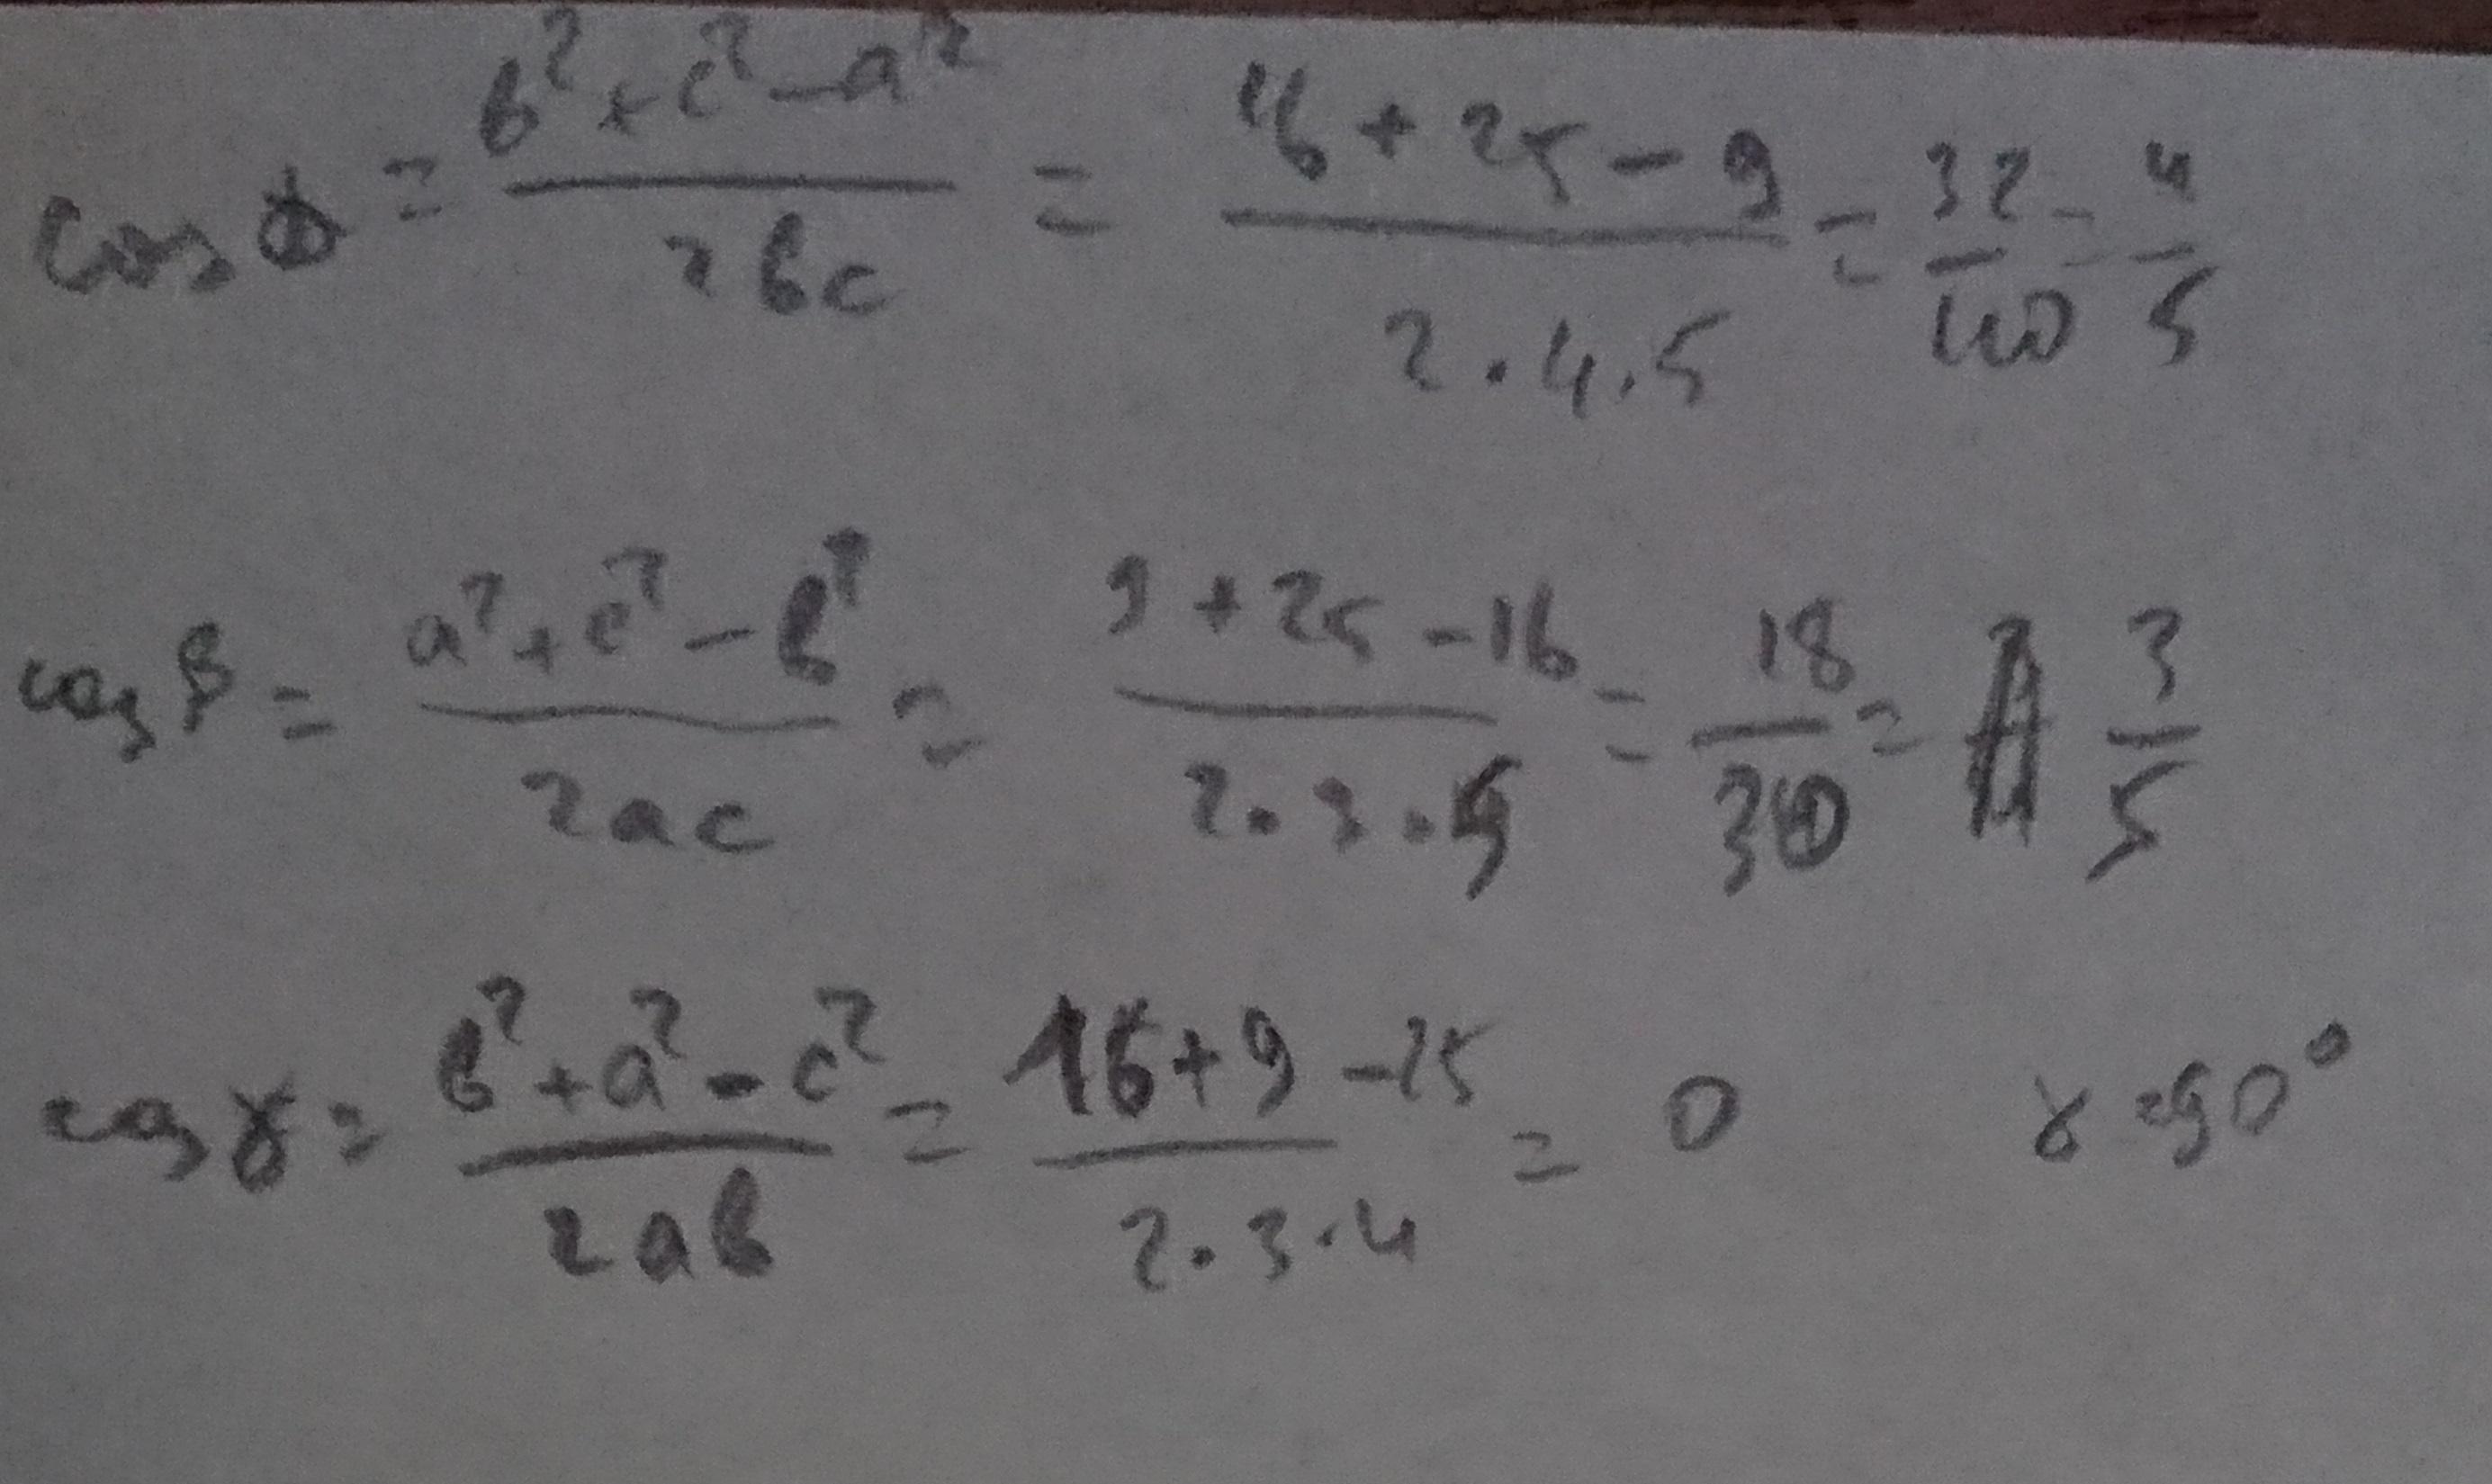 cos α = (b² + c² - a²) / (2bc) = (16 + 25 - 9) / (2 · 4 · 5) = 32/40 = 4/5
cos β = (a² + c² - b²) / (2ac) = (9 + 25 - 16) / (2 · 3 · 5) = 18/30 = 3/5
cos γ = (b² + a² - c²) / (2ab) = (16 + 9 - 25) / (2 · 3 · 4) = 0 γ = 90°